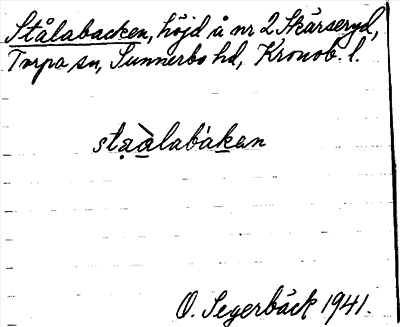 Stålabacken, höjd å nr 2 Skärseryd,
Torpa sn, Sunnerbo hd, Kronob. l.
staàlabáken
O. Segerbäck 1941.